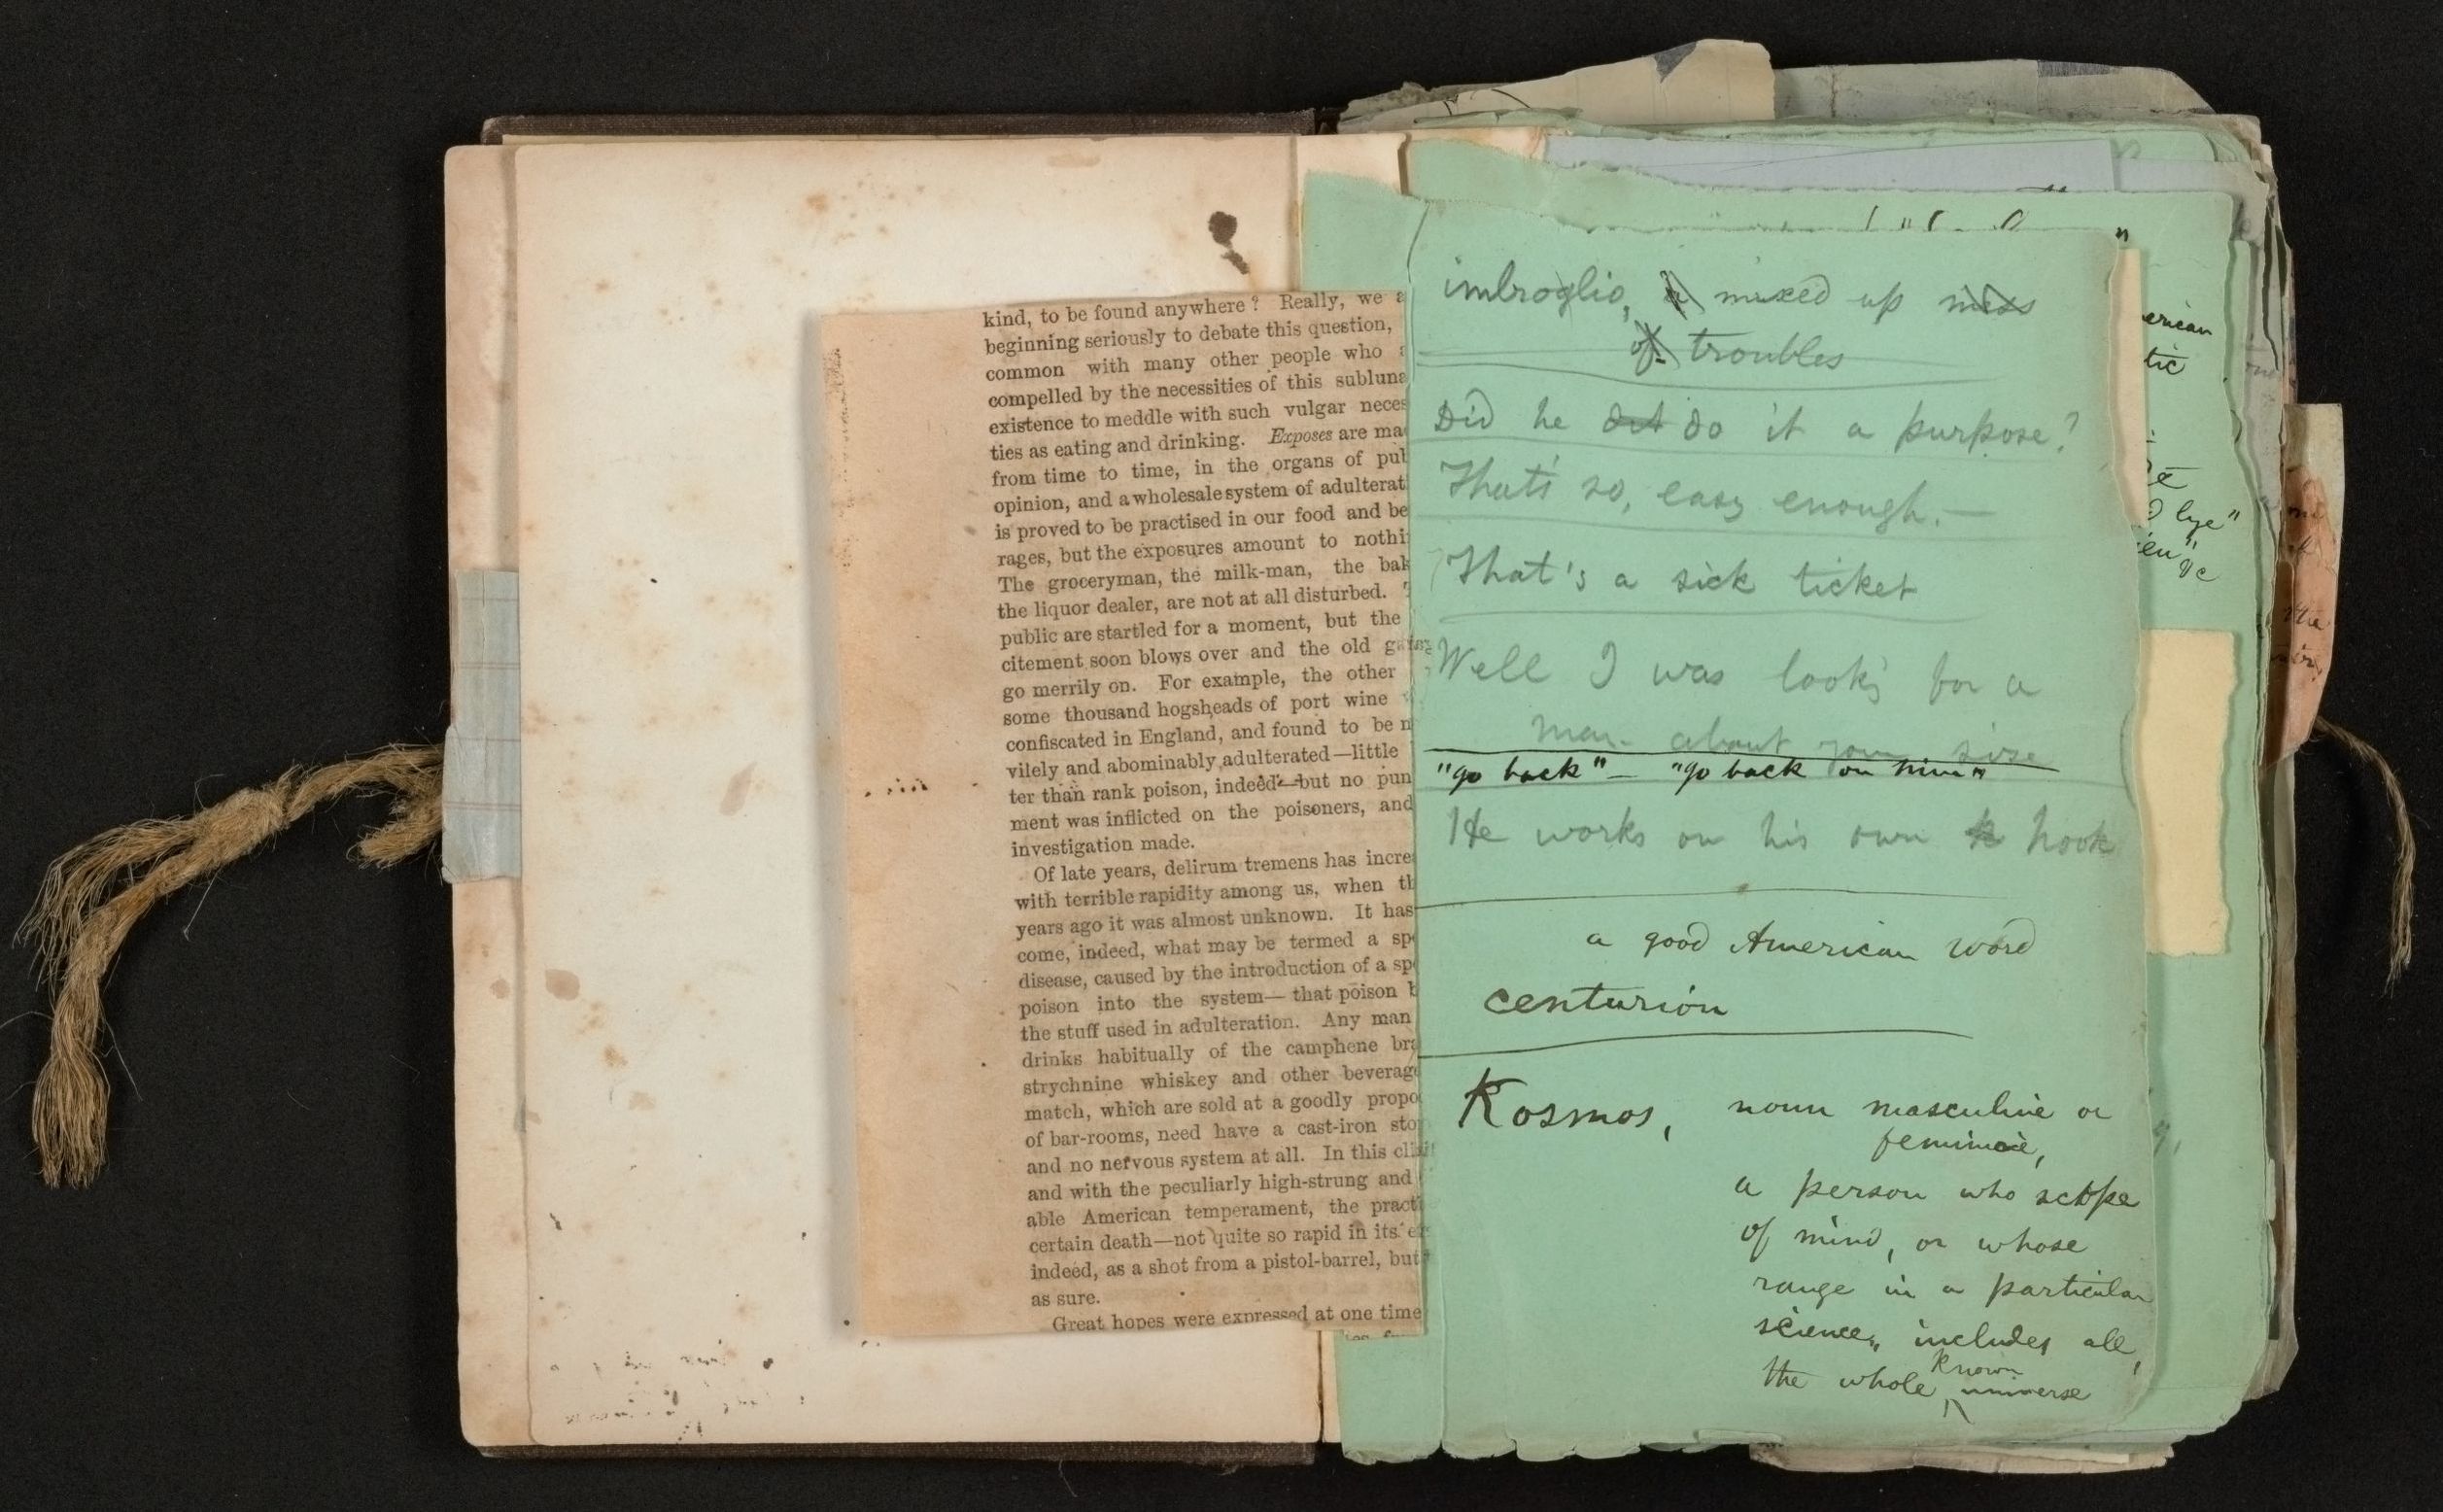 kind, to be found anywhere? Really, we a
beginning seriously to debate this question,
common with many other people who a
compelled by the necessities of this subluna
existence to meddle with such vulgar neces
ties as eating and drinking. Exposes are ma
from time to time, in the organs of pul
opinion, and a wholesale system of adulterat
is proved to be practised in our food and be
rages, but the exposures amount to nothi
The groceryman, the milk-man, the bak
the liquor dealer, are not at all disturbed.
public are startled for a moment, but the
citement soon blows over and the old ga
go merrily on. For example, the other
some thousand hogsheads of port wine
confiscated in England, and found to be n
vilely and abominably adulterated—little
ter than rank poison, indeed—but no pun
ment was inflicted on the poisoners, and
investigation made.
Of late years, delirum tremens has incre
with terrible rapidity among us, when th
years ago it was almost unknown. It has
come, indeed, what may be termed a spe
disease, caused by the introduction of a spe
poison into the system—that poison b
the stuff used in adulteration. Any man
drinks habitually of the camphene bra
strychnine whiskey and other beverage
match, which are sold at a goodly propo
of bar-rooms, need have a cast-iron sto
and no nervous system at all. In this cli
and with the peculiarly high-strung and
able American temperament, the pract
certain death—not quite so rapid in its e
indeed, as a shot from a pistol-barrel, but
as sure.
Great hopes were expressed at one time
imbroglio, a mixed up mess
of troubles
Did he do it a purpose?
That's so, easy enough.—
That's a sick ticket
Well I was look'g for a
man about your size
"go back" — "go back on him"
He works on his own hook
a good American word
centurion
Kosmos, noun masculine or
feminine,
a person who scope
of mind, or whose
range in a particular
science, includes all,
the whole known universe
erican
tic
lye"